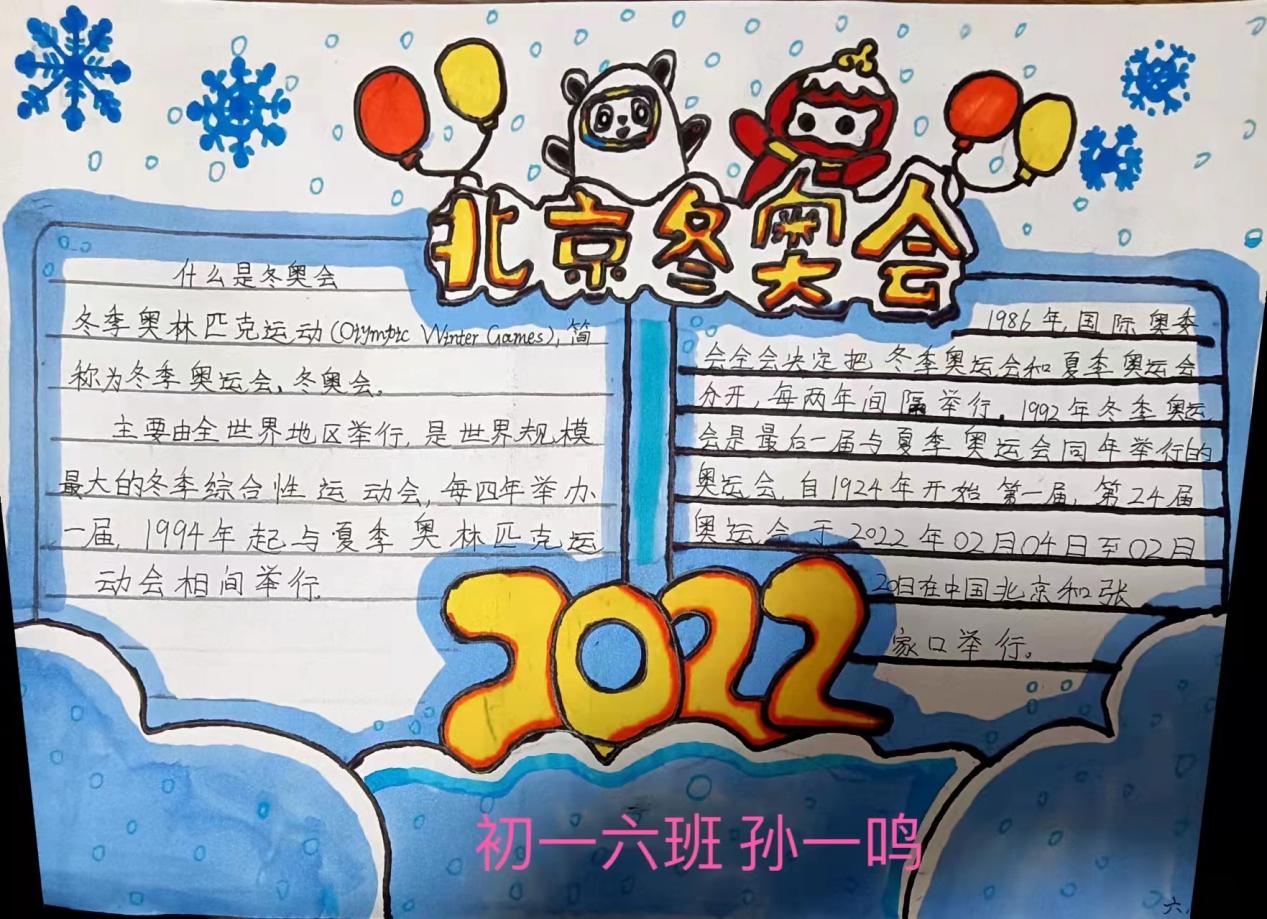 北京冬奥会
什么是冬奥会
冬季奥林匹克运动(Olympic Winter Games),简
称为冬季奥运会、冬奥会。
主要由全世界地区举行,是世界规模
最大的冬季综合性运动会,每四年举办
一届,1994年起与夏季奥林匹克运
动会相间举行
1986年,国际奥委
会全会决定把冬季奥运会和夏季奥运会
分开,每两年间隔举行,1992年冬季奥运
会是最后一届与夏季奥运会同年举行的
奥运会,自1924年开始第一届,第24届
奥运会于2022年02月04日至02月
20日在中国北京和张
家口举行。
2022
初一六班 孙一鸣
六.